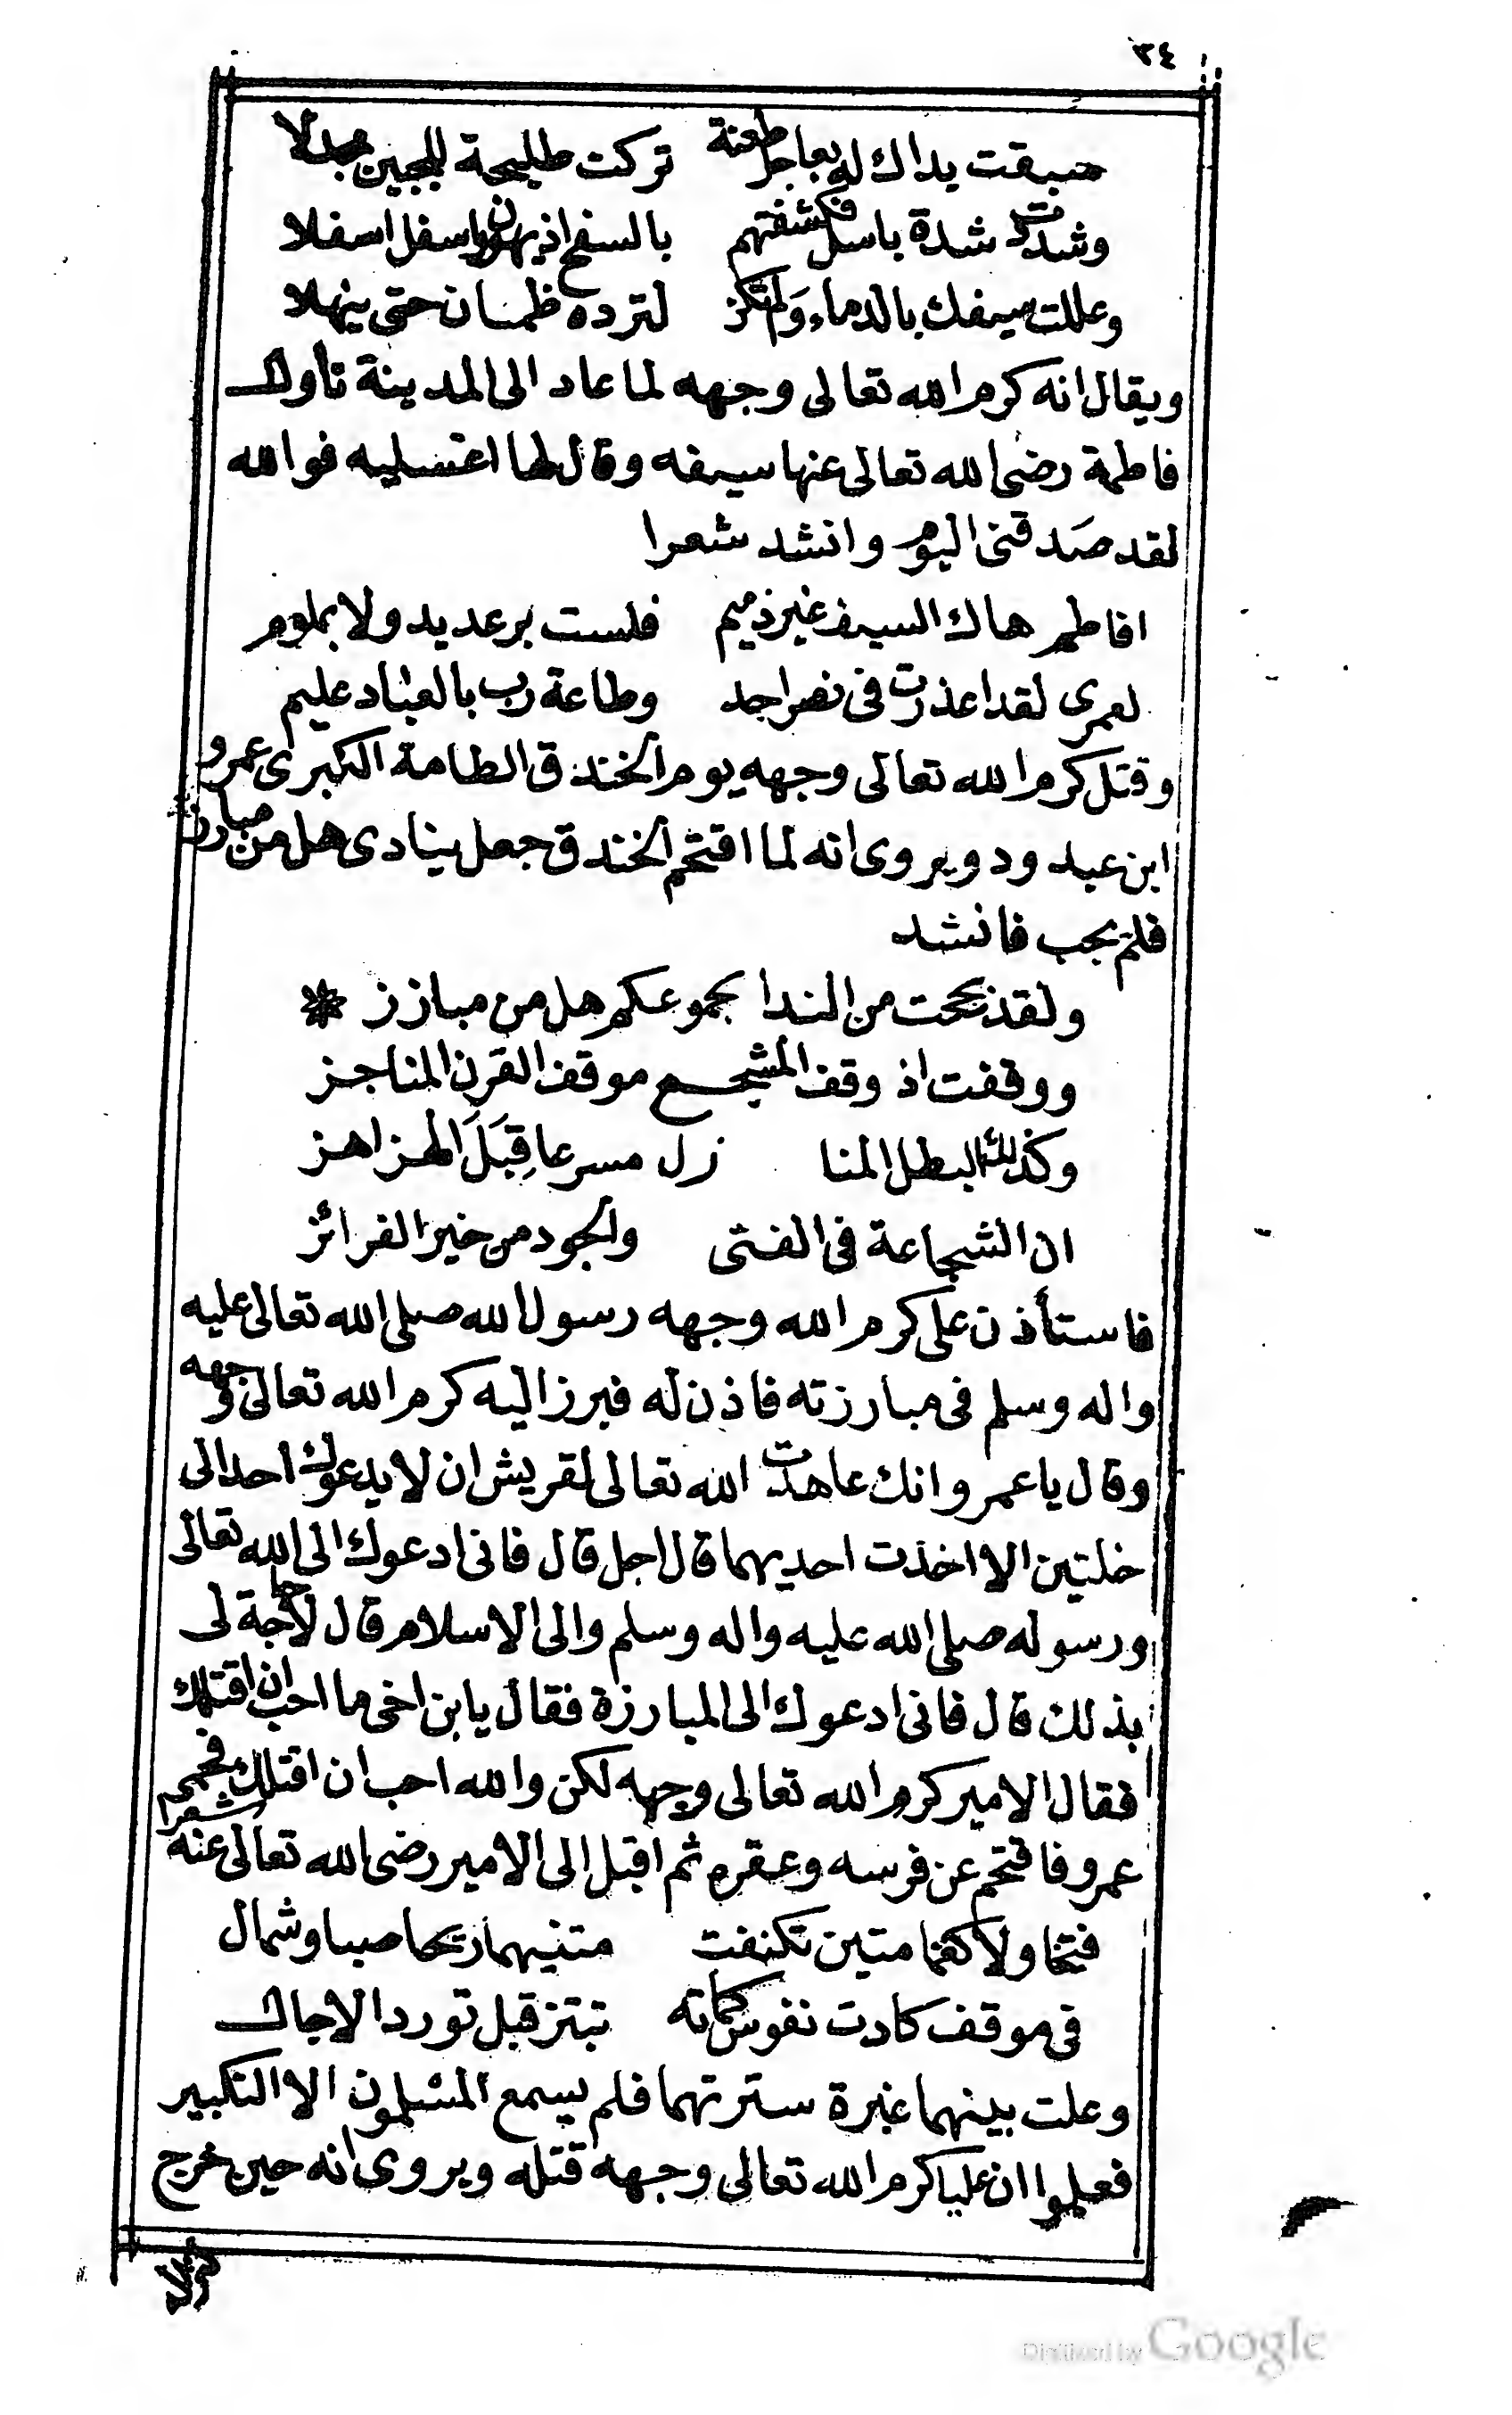 ٣٤
سبقت يداك له بعاجل طعنة تركت طليحة للجبين مجدلا
وشددت شدة باسل فكشفتهم بالسفح اذ يهوون اسفل اسفلا
وعللت سيفك بالدماء ولم تكن لترده ظمان حتى ينهلا
ويقال انه كرم الله تعالى وجهه لما عاد الى المدينة ناول
فاطمة رضى الله تعالى عنها سيفه وقال لها اغسليه فوالله
لقد صدقنى اليوم وانشد شعرا
افاطم هاك السيف غير ذميم فلست برعديد ولا بملوم
لعمرى لقد اعذرت فى نصر احمد وطاعة رب بالعباد عليم
وقتل كرم الله تعالى وجهه يوم الخندق الطامة الكبرى عمرو
ابن عبد ود ويروى انه لما اقتحم الخندق جعل ينادى هل من مبارز
فلم يجب فانشد
ولقد بححت من الندا بجمو عكم هل من مبارز
ووقفت اذ وقف المشجع موقف القرن المناجز
وكذلك البطل المنا زل مسرعا قبل الهزاهز
ان الشجاعة فى الفتى والجود من خير الغرائز
فاستأذن على كرم الله وجهه رسول الله صلى الله تعالى عليه
واله وسلم فى مبارزته فاذن له فبرز اليه كرم الله تعالى وجهه
وقال يا عمرو انك عاهدت الله تعالى لقريش ان لا يدعوك احد الى
خلتين الا اخذت احديهما قال اجل قال فانى ادعوك الى الله تعالى
ورسوله صلى الله عليه واله وسلم والى الاسلام قال لا حاجة لى
بذلك قال فانى ادعوك الى المبارزة فقال يا بن اخى ما احب ان اقتلك
فقال الامير كرم الله تعالى وجهه لكن والله احب ان اقتلك فحمى
عمرو فاقتحم عن فرسه وعقره ثم اقبل الى الامير رضى الله تعالى عنه شعرا
فتخاولا كغمامتين تكنفت متنيهما ريحا صبا وشمال
فى موقف كادت نفوس كماته تبتز قبل تورد الاجال
وعلت بينهما غبرة سترتهما فلم يسمع المسلمون الا التكبير
فعلموا ان عليا كرم الله تعالى وجهه قتله ويروى انه حين خرج
Digitized by Google